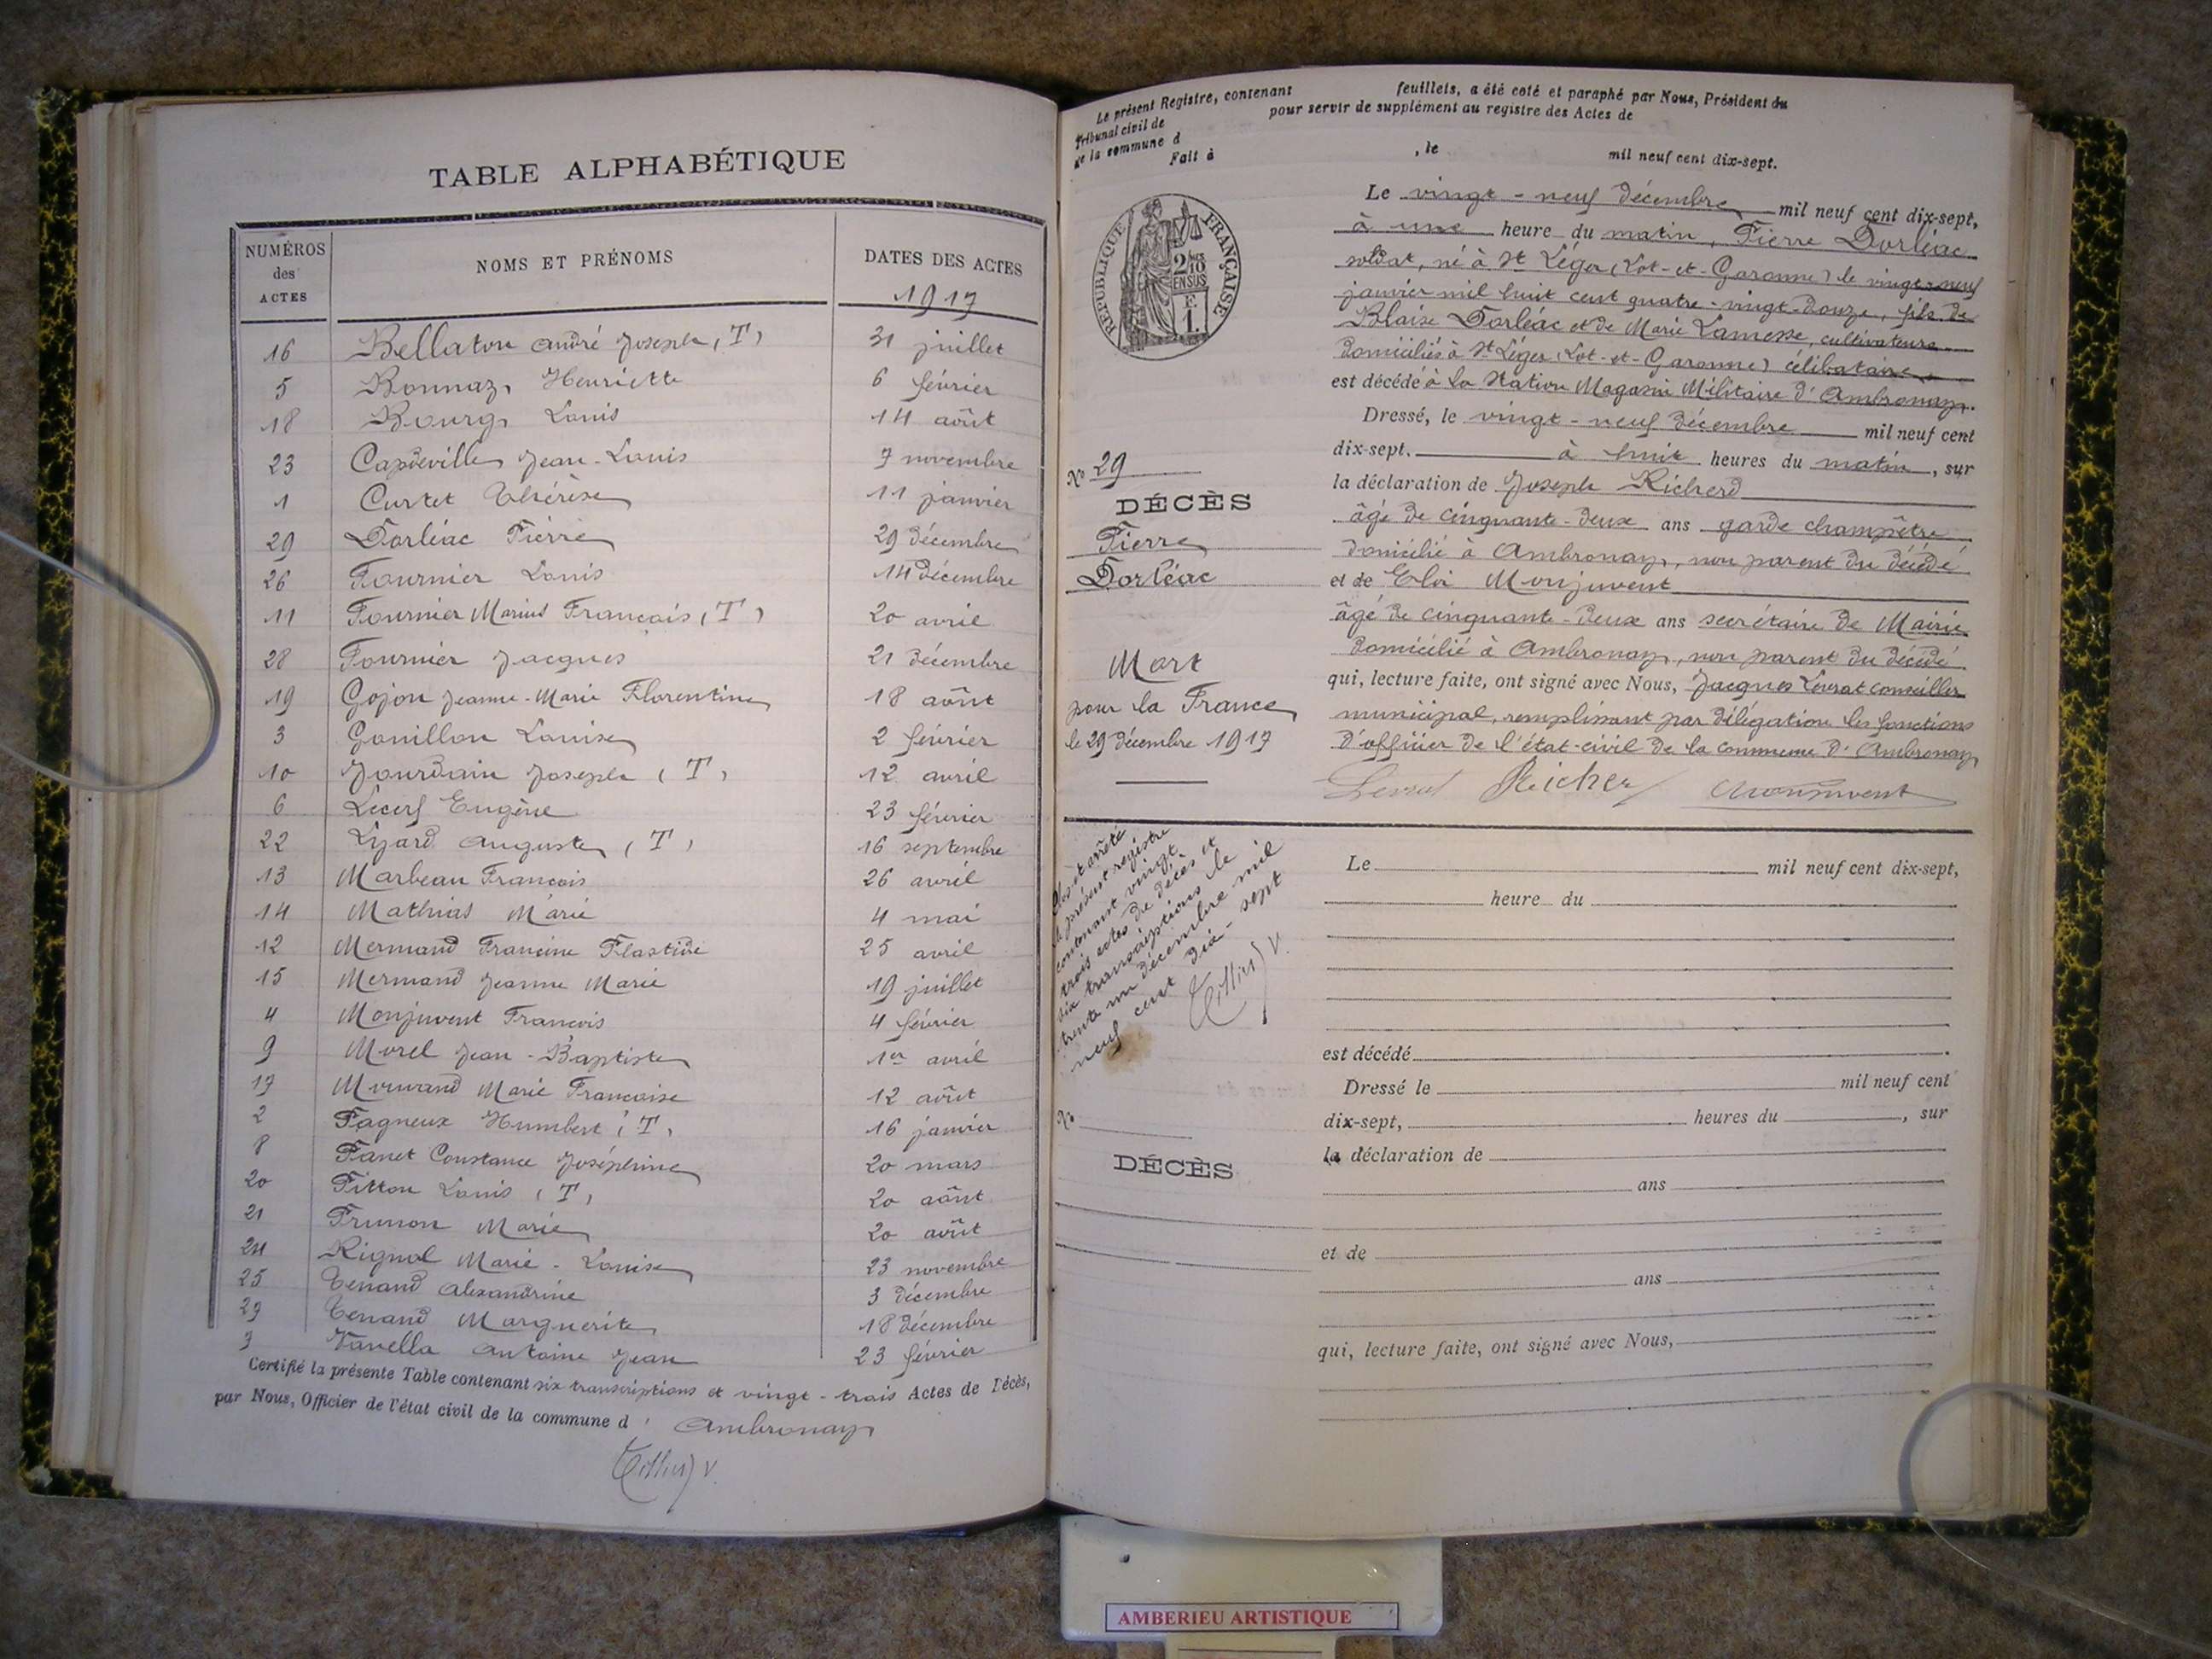 TABLE ALPHABÉTIQUE
NUMÉROS des ACTES
NOMS ET PRÉNOMS
DATES DES ACTES
1917
16 Bellaton André Joseph (T) 31 juillet
5 Bonnaz Henriette 6 février
18 Bourg Louis 14 août
23 Capdeville Jean-Louis 7 novembre
1 Curtet Thérèse 11 janvier
29 Dorléac Pierre 29 décembre
26 Fournier Louis 14 décembre
11 Fournier Marius François (T) 20 avril
28 Fournier Jacques 21 décembre
19 Gojon Jeanne-Marie Florentine 18 août
3 Gouillon Louise 2 février
10 Jourdain Joseph (T) 12 avril
6 Lecerf Eugène 23 février
22 Lyard Auguste (T) 16 septembre
13 Marbeau François 26 avril
14 Mathias Marie 4 mai
12 Mermand Francine 25 avril
15 Mermand Jeanne Marie 19 juillet
4 Monjuvent François 4 février
9 Morel Jean-Baptiste 1er avril
17 Marie Françoise 12 août
2 Pagneux Humbert (T) 16 janvier
8 Panet Constance Joséphine 20 mars
20 Pitton Louis (T) 20 août
21 Prunon Marie 20 août
24 Rignol Marie-Louise 23 novembre
25 Tenand Alexandrine 3 décembre
27 Tenand Marguerite 18 décembre
7 Vanella Antoine Jean 23 février
Certifié la présente Table contenant six transcriptions et vingt-trois Actes de Décès,
par Nous, Officier de l'état civil de la commune d'Ambronay
Le présent Registre, contenant feuillets, a été coté et paraphé par Nous, Président du
Tribunal civil de pour servir de supplément au registre des Actes de
de la commune d
Fait à , le mil neuf cent dix-sept.
RÉPUBLIQUE FRANÇAISE
2/10 EN SUS
F. 1.
No 29
DÉCÈS
Pierre
Dorléac
Mort
pour la France
le 29 décembre 1917
Le vingt-neuf décembre mil neuf cent dix-sept,
à une heure du matin, Pierre Dorléac
soldat, né à St Léger (Lot-et-Garonne) le vingt-neuf
janvier mil huit cent quatre-vingt-douze, fils de
Blaise Dorléac et de Marie Lamesse, cultivateurs
domiciliés à St Léger (Lot-et-Garonne) célibataire
est décédé à la Station Magasin Militaire d'Ambronay.
Dressé, le vingt-neuf décembre mil neuf cent
dix-sept, à huit heures du matin, sur
la déclaration de Joseph Richerd
âgé de cinquante-deux ans garde champêtre
domicilié à Ambronay, non parent du décédé
et de Eloi Monjuvent
âgé de cinquante-deux ans secrétaire de Mairie
domicilié à Ambronay, non parent du décédé
qui, lecture faite, ont signé avec Nous, Jacques Levrat conseiller
municipal, remplissant par délégation les fonctions
d'officier de l'état-civil de la commune d'Ambronay
Levrat Richerd Monjuvent
Clos et arrêté
le présent registre
contenant vingt
trois actes de décès et
six transcriptions le
trente un décembre mil
neuf cent dix-sept
No
DÉCÈS
Le mil neuf cent dix-sept,
heure du
est décédé
Dressé le mil neuf cent
dix-sept, heures du , sur
la déclaration de
ans
et de
ans
qui, lecture faite, ont signé avec Nous,
AMBERIEU ARTISTIQUE